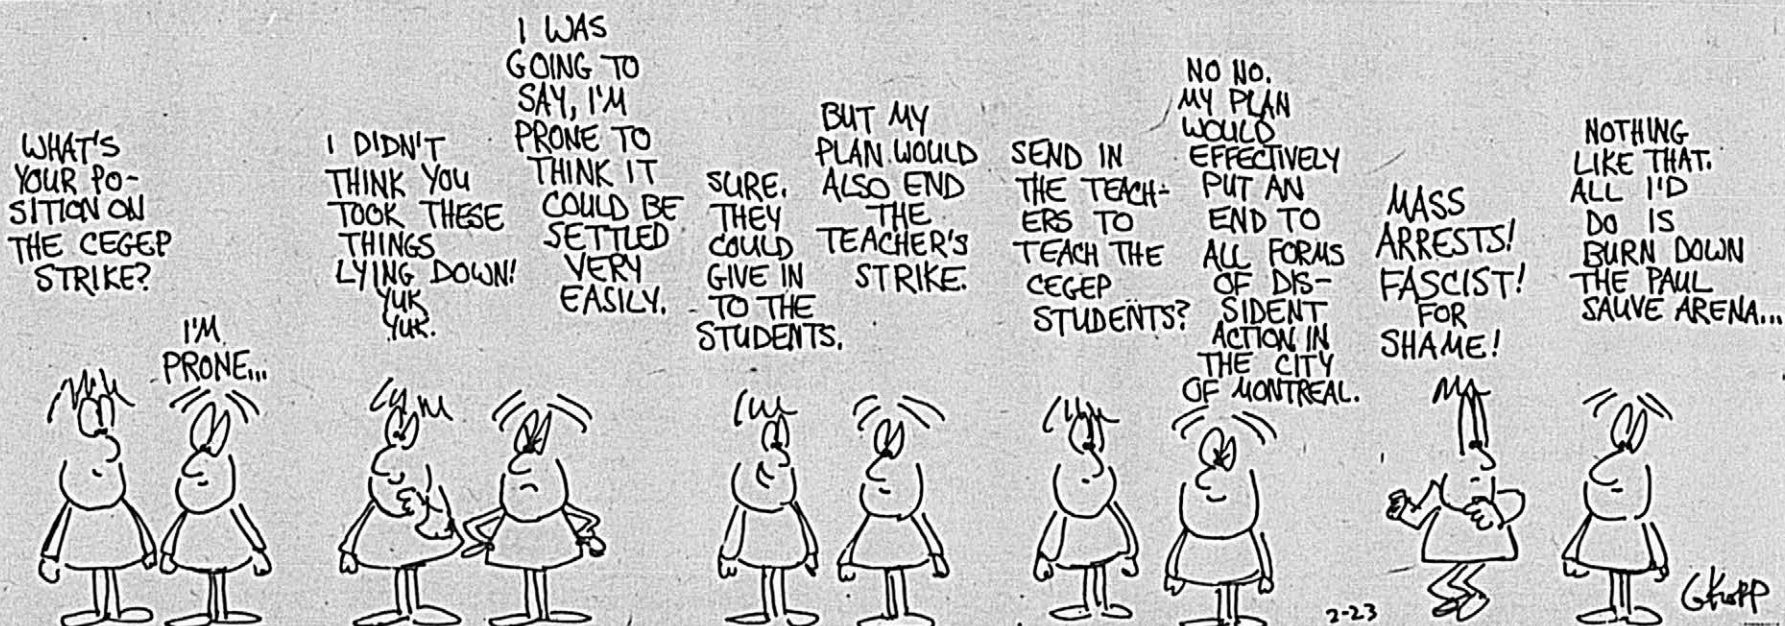 WHAT'S
YOUR PO-
SITION ON
THE CEGEP
STRIKE?
I'M
PRONE...
I DIDN'T
THINK YOU
TOOK THESE
THINGS
LYING DOWN!
YUK
YUK.
I WAS
GOING TO
SAY, I'M
PRONE TO
THINK IT
COULD BE
SETTLED
VERY
EASILY.
SURE.
THEY
COULD
GIVE IN
TO THE
STUDENTS.
BUT MY
PLAN WOULD
ALSO END
THE
TEACHER'S
STRIKE.
SEND IN
THE TEACH-
ERS TO
TEACH THE
CEGEP
STUDENTS?
NO NO.
MY PLAN
WOULD
EFFECTIVELY
PUT AN
END TO
ALL FORMS
OF DIS-
SIDENT
ACTION IN
THE CITY
OF MONTREAL.
MASS
ARRESTS!
FASCIST!
FOR
SHAME!
NOTHING
LIKE THAT.
ALL I'D
DO IS
BURN DOWN
THE PAUL
SAUVE ARENA...
2-23
GKOPP